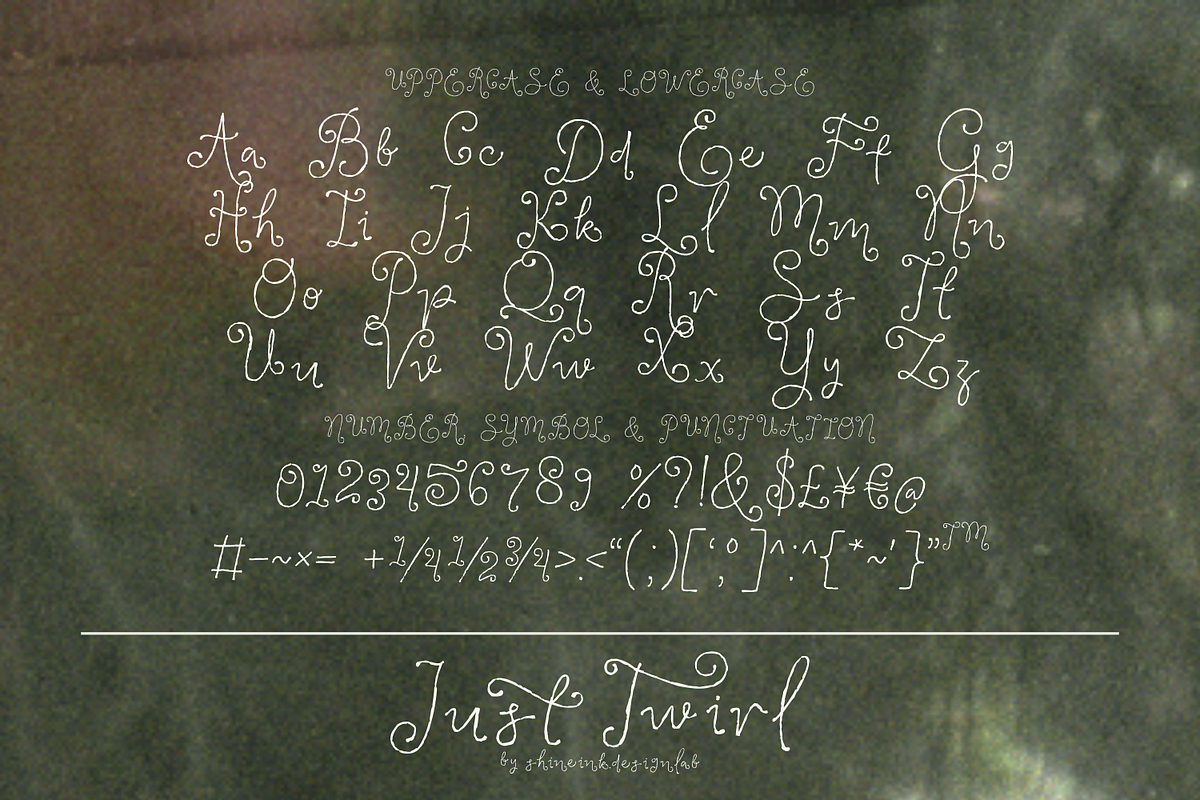 UPPERCASE & LOWERCASE
Aa Bb Cc Dd Ee Ff Gg
Hh Ii Jj Kk Ll Mm Nn
Oo Pp Qq Rr Ss Tt
Uu Vv Ww Xx Yy Zz
NUMBER, SYMBOL & PUNCTUATION
0123456789 %?!&$£¥€@
#-~×= +1/4 1/2 3/4>.<“(;)[‘;°]^·.^{*~'}”TM
Just Twirl
by shineink.designlab